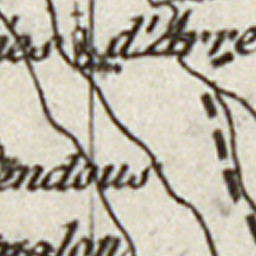 ès d'Arre
endous
alon